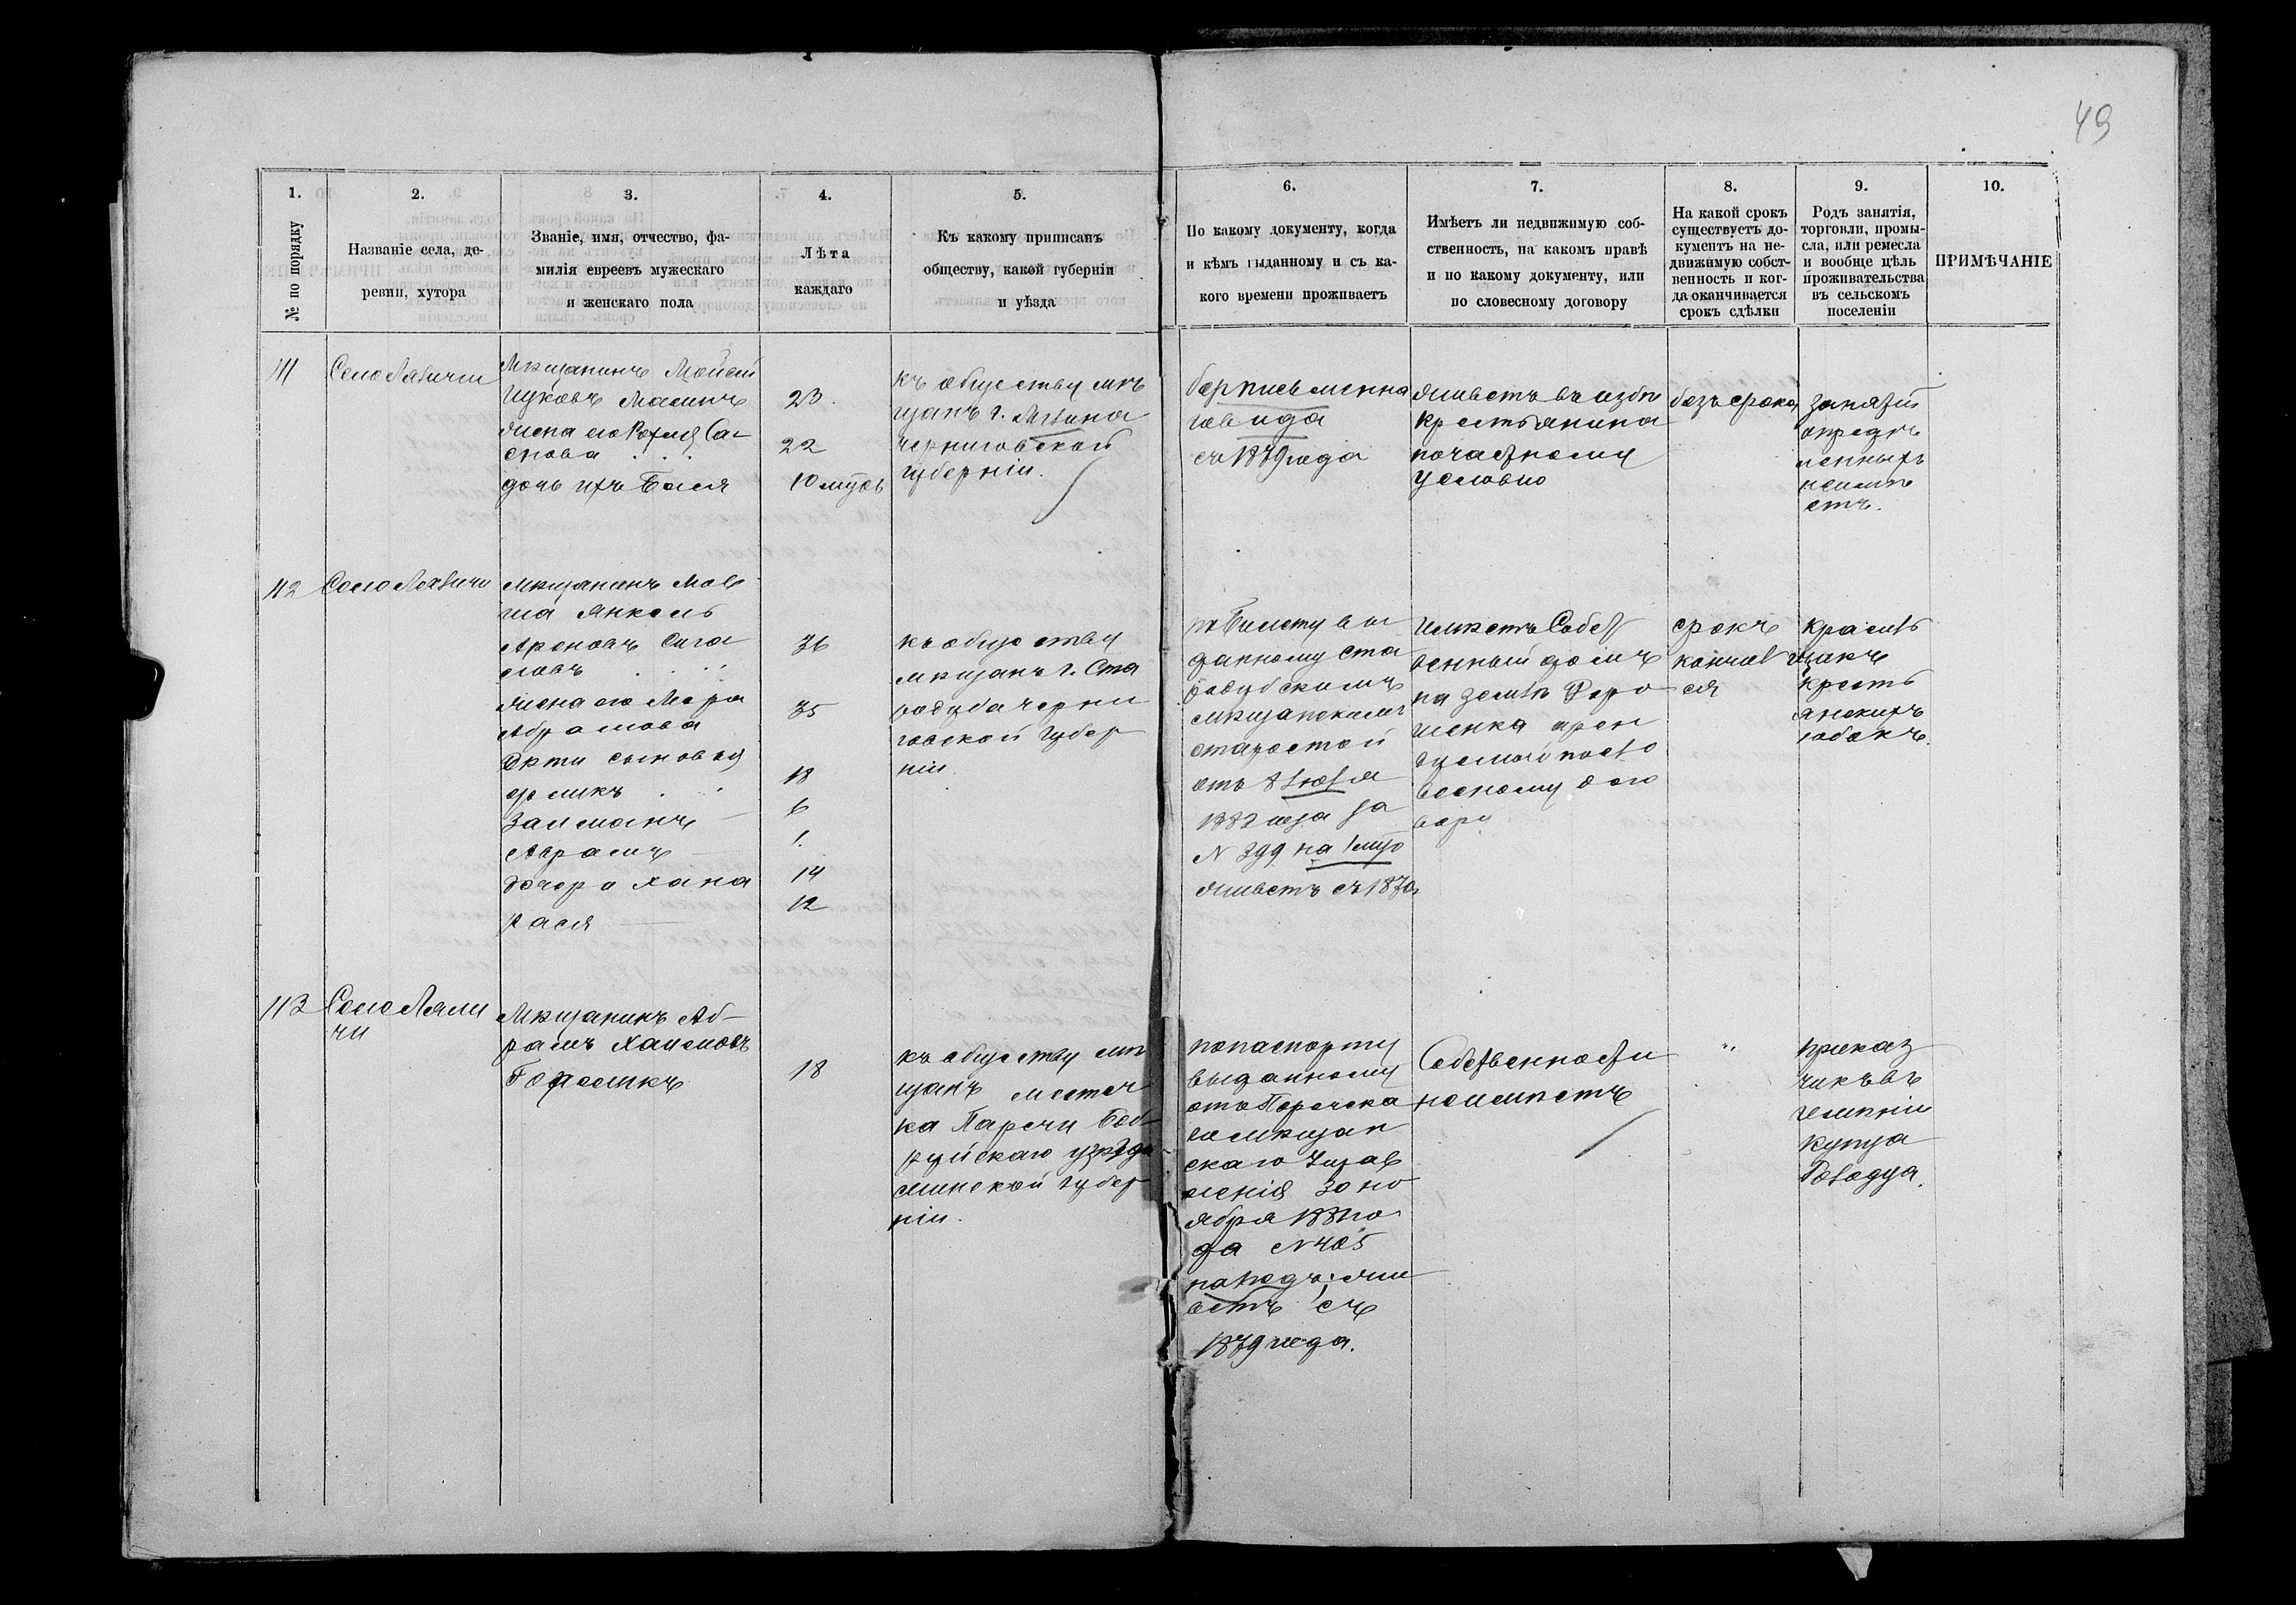 49
1.
2.
3.
4.
5.
6.
7.
8.
9.
10.
№ по порядку
Названіе села, де-
ревни, хутора
Званіе, имя, отчество, фа-
милія евреевъ мужескаго
и женскаго пола
Лѣта
каждаго
Къ какому приписанъ
обществу, какой губерніи
и уѣзда
По какому документу, когда
и кѣмъ выданному и съ ка-
кого времени проживаетъ
Имѣетъ ли недвижимую соб-
ственность, на какомъ правѣ
и по какому документу, или
по словесному договору
На какой срокъ
существуетъ до-
кументъ на не-
движимую собст-
венность и ког-
да оканчивается
срокъ сдѣлки
Родъ занятія,
торговли, промы-
сла, или ремесла
и вообще цѣль
проживательства
въ сельскомъ
поселеніи
ПРИМѢЧАНІЕ
111
Село
Мѣщанинъ Мойсей
жена его
дочь ихъ Бася
23.
22
10 мѣс
къ обществу мѣ
щанъ г.
черниговской
губерніи.
безъ письменна
го вида
съ 1879 года
живетъ въ избѣ
крестьянина
по частному
условію
безъ срока
занятій
опредѣ
ленныхъ
неимѣ
етъ.
112
Село
мѣщанинъ Мов
ша Янкель
Ароновъ
жена его Мера
Абрамова
дѣти сыновья
Залманъ
Абрамъ
дочери Хана
Рася
36
35
18
6
1.
14
12
къ обществу
мѣщанъ г. Ста
родуба черни
говской губер
ніи.
по билету вы
данному Ста
родубскимъ
мѣщанскимъ
старостой
отъ 8 Іюля
1882 года за
N 399 на 1 годъ
живетъ съ 1870
имѣетъ Собст
венный домъ
на землѣ
арен
дуемой по сло
весному дого
вору
срокъ
кончил
ся
красил
щикъ
кресть
янскихъ
юбокъ.
113
Село Лялич
чи
Мѣщанинъ Аб-
рамъ Хаимовъ
18
къ обществу мѣ
щанъ местеч
ка Паричи Боб-
руйскаго уѣзда
минской губер
ніи.
по паспорту
выданному
отъ
го мѣщан
скаго Управ
ленія 30 но
ября 1881 го
да N 405
на годъ; жи
ветъ съ
1879 года.
Собственности
неимѣетъ
"
приказ
чикъ въ
имѣніи
купца